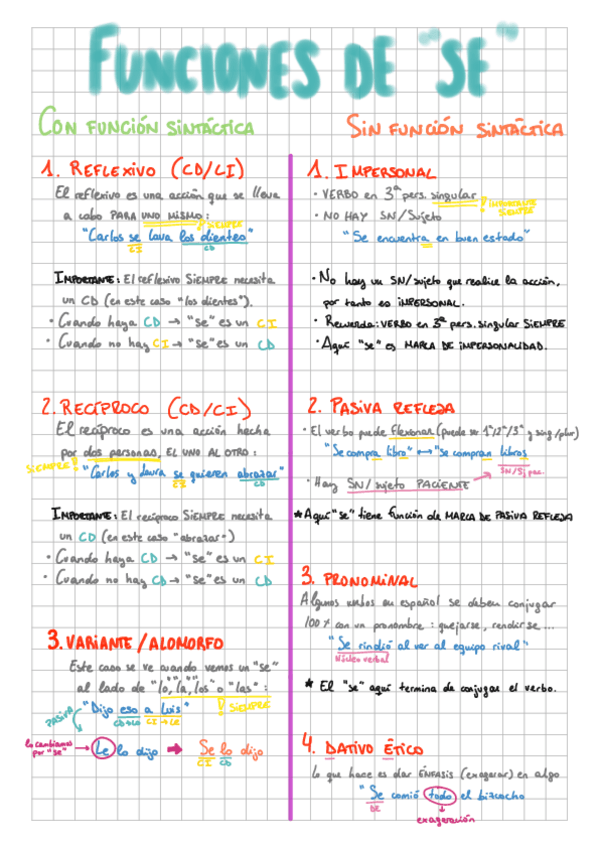 FUNCIONES DE "SE"
CON FUNCIÓN SINTÁCTICA
1. REFLEXIVO (CD/CI)
El reflexivo es una acción que se lleva
a cabo PARA UNO MISMO:
! SIEMPRE
"Carlos se lava los dientes"
CI CD
IMPORTANTE: El reflexivo SIEMPRE necesita
un CD (en este caso "los dientes").
· Cuando haya CD → "se" es un CI
· Cuando no hay CI → "se" es un CD
2. RECÍPROCO (CD/CI)
El recíproco es una acción hecha
por dos personas, EL UNO AL OTRO:
SIEMPRE!
"Carlos y Laura se quieren abrazar"
CI CD
IMPORTANTE: El recíproco SIEMPRE necesita
un CD (en este caso "abrazar")
· Cuando haya CD → "se" es un CI
· Cuando no hay CD → "se" es un CD
3. VARIANTE/ALOMORFO
Este caso se ve cuando vemos un "se"
al lado de "lo, la, los" o "las":
! SIEMPRE
"Dijo eso a Luis"
CD→LO CI→LE
PASIVA
lo cambiamos
por "se"
→ Le lo dijo → Se lo dijo
CI CD
SIN FUNCIÓN SINTÁCTICA
1. IMPERSONAL
· VERBO en 3ª pers. singular
! IMPORTANTE
SIEMPRE
· NO HAY SN/Sujeto
"Se encuentra en buen estado"
· No hay un SN/sujeto que realice la acción,
por tanto es IMPERSONAL.
· Recuerda: VERBO en 3ª pers. singular SIEMPRE
· Aquí "se" es MARCA DE IMPERSONALIDAD.
2. PASIVA REFLEJA
· El verbo puede flexionar (puede ser 1ª/2ª/3ª y sing/plur)
"Se compra libro" ↔ "Se compran libros
SN/Sj pac.
· Hay SN/sujeto PACIENTE
* Aquí "se" tiene función de MARCA DE PASIVA REFLEJA
3. PRONOMINAL
Algunos verbos en español se deben conjugar
100% con un pronombre: quejarse, rendirse...
"Se rindió al ver al equipo rival"
Núcleo verbal
* El "se" aquí termina de conjugar el verbo.
4. DATIVO ÉTICO
lo que hace es dar ÉNFASIS (exagerar) en algo
"Se comió todo el bizcocho
DE
exageración